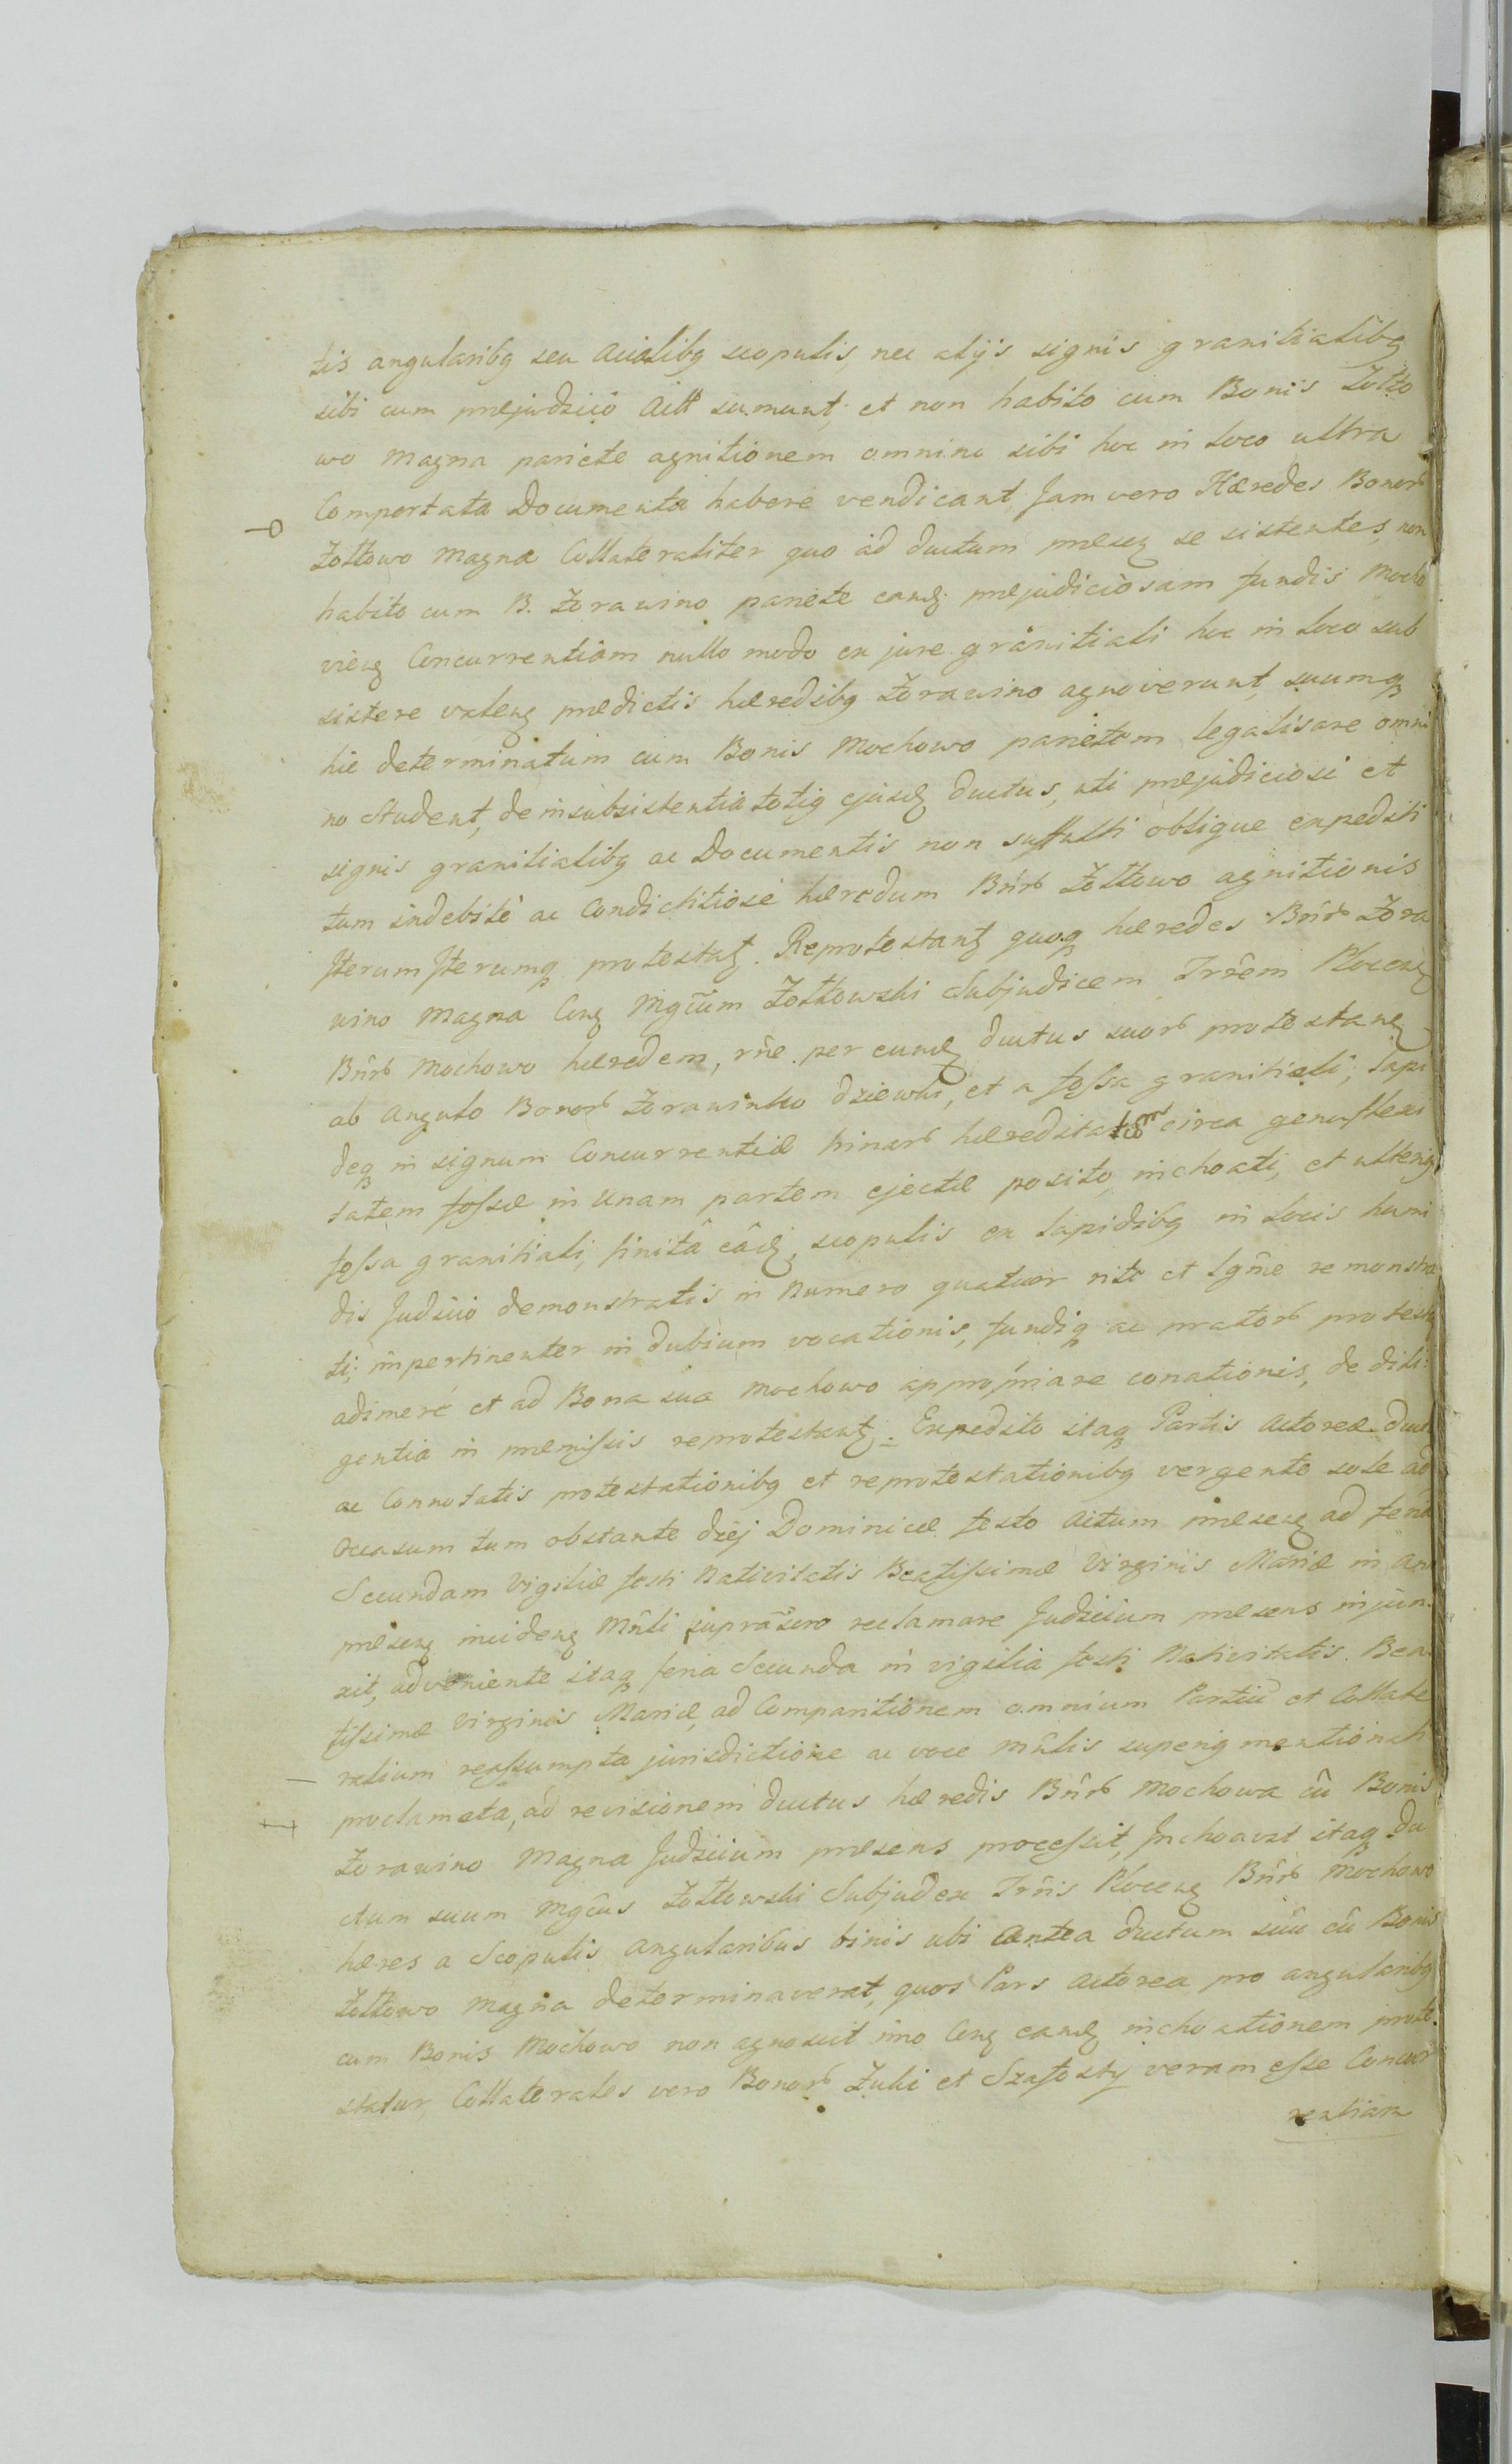 tis angularibq seu acialibq scopulis, nec alijs signis granitialibq
sibi cum præjudicio sumunt, et non habito cum Bonis Żółto
wo magna pariete agnitionem omnino sibi hoc in loco ultra
Comportata Documenta habere vendicant, Jam vero Hæredes Bonorb
Żółtowo Magna Collateraliter quo ad ductum præsenz se sistentes, non
habito cum B. Żorawino pariete præjudiciosam fundis Mocho
vienz Concurrentiam nullo modo ex jure granitiali hoc in loco sub
sistere valenz prædictis hæredibq Żorawino agnoverunt, suumqz
hic determinatum cum Bonis Mochowo parietem legalisare omni
no Student, de insubsistentia totiq ejusdz ductus, uti præjudiciosi et
signis granitialibq ac Documentis non suffulti oblique expediti
tum indebité ac Condictitiosé hæredum Bnrb Żółtowo agnitionis
Iterum Iterumqz protestatz. Reprotestantz quoqz hæredes Bnrb Żora
wino Magna Conz Mgcum Żółtowski Subjudicem Trrem Plocenz
Bnrb Mochowo hæredem, rne per eundz ductus suorb protestanz
ab angulo Bonorb Żorawinko dziewki, et a fossa granitiali, lapi
deqz in signum Concurrentiæ trinarb hæreditatum circa genuflexi
tatem fossæ in unam partem ejectæ posito, inchoati, et ulteriq
fossa granitiali, finitâ eâdz, scopulis ex lapidibq in locis humi
dis Judicio demonstratis in numero quatuor rite et lgme remonstra
ti; impertinenter in dubium vocationis, fundiqz ac pratorb protestz
adimeré et ad Bona sua Mochowo appropriare conationis, de dili:
gentia in præmissis reprotestantz. Expedito itaqz Partis Actoreæ ductu
ac Connotatis protestationibq et reprotestationibq vergente sole ad
Occasum tum obstante diej Dominicæ festo actum præsenz ad feria
Secundam Vigiliæ festi Nativitatis Beatissimæ Virginis Mariæ in ann
præsenz incidenz Mnli reclamare Judicium præsens injun.
xit, adveniente itaqz feria Secunda in vigilia festi Nativitatis Bea
tissimæ Virginis Mariæ, ad Comparitionem omnium Partiū et Collate
ralium reassumpta jurisdictione ac voce mnlis superiq mentionati
proclamata, ad revisionem ductus hæredis Bnrb Mochowa cū Bonis
Żorawino Magna Judicium præsens processit, Inchoavit itaqz du
ctum suum Mgcus Żółtowski Subjudex Trris Plocenz Bnrb Mochowo
hæres a Scopulis angularibus binis ubi antea ductum suū cū Bonis
Żółtowo Magna determinaverat, quos Pars Actorea pro angularibq
cum Bonis Mochowo non agnoscit imo Conz eandz inchoationem prote.
statur, Collaterales vero Bonorb Żuki et Szafosty veram esse Concur
rentiam